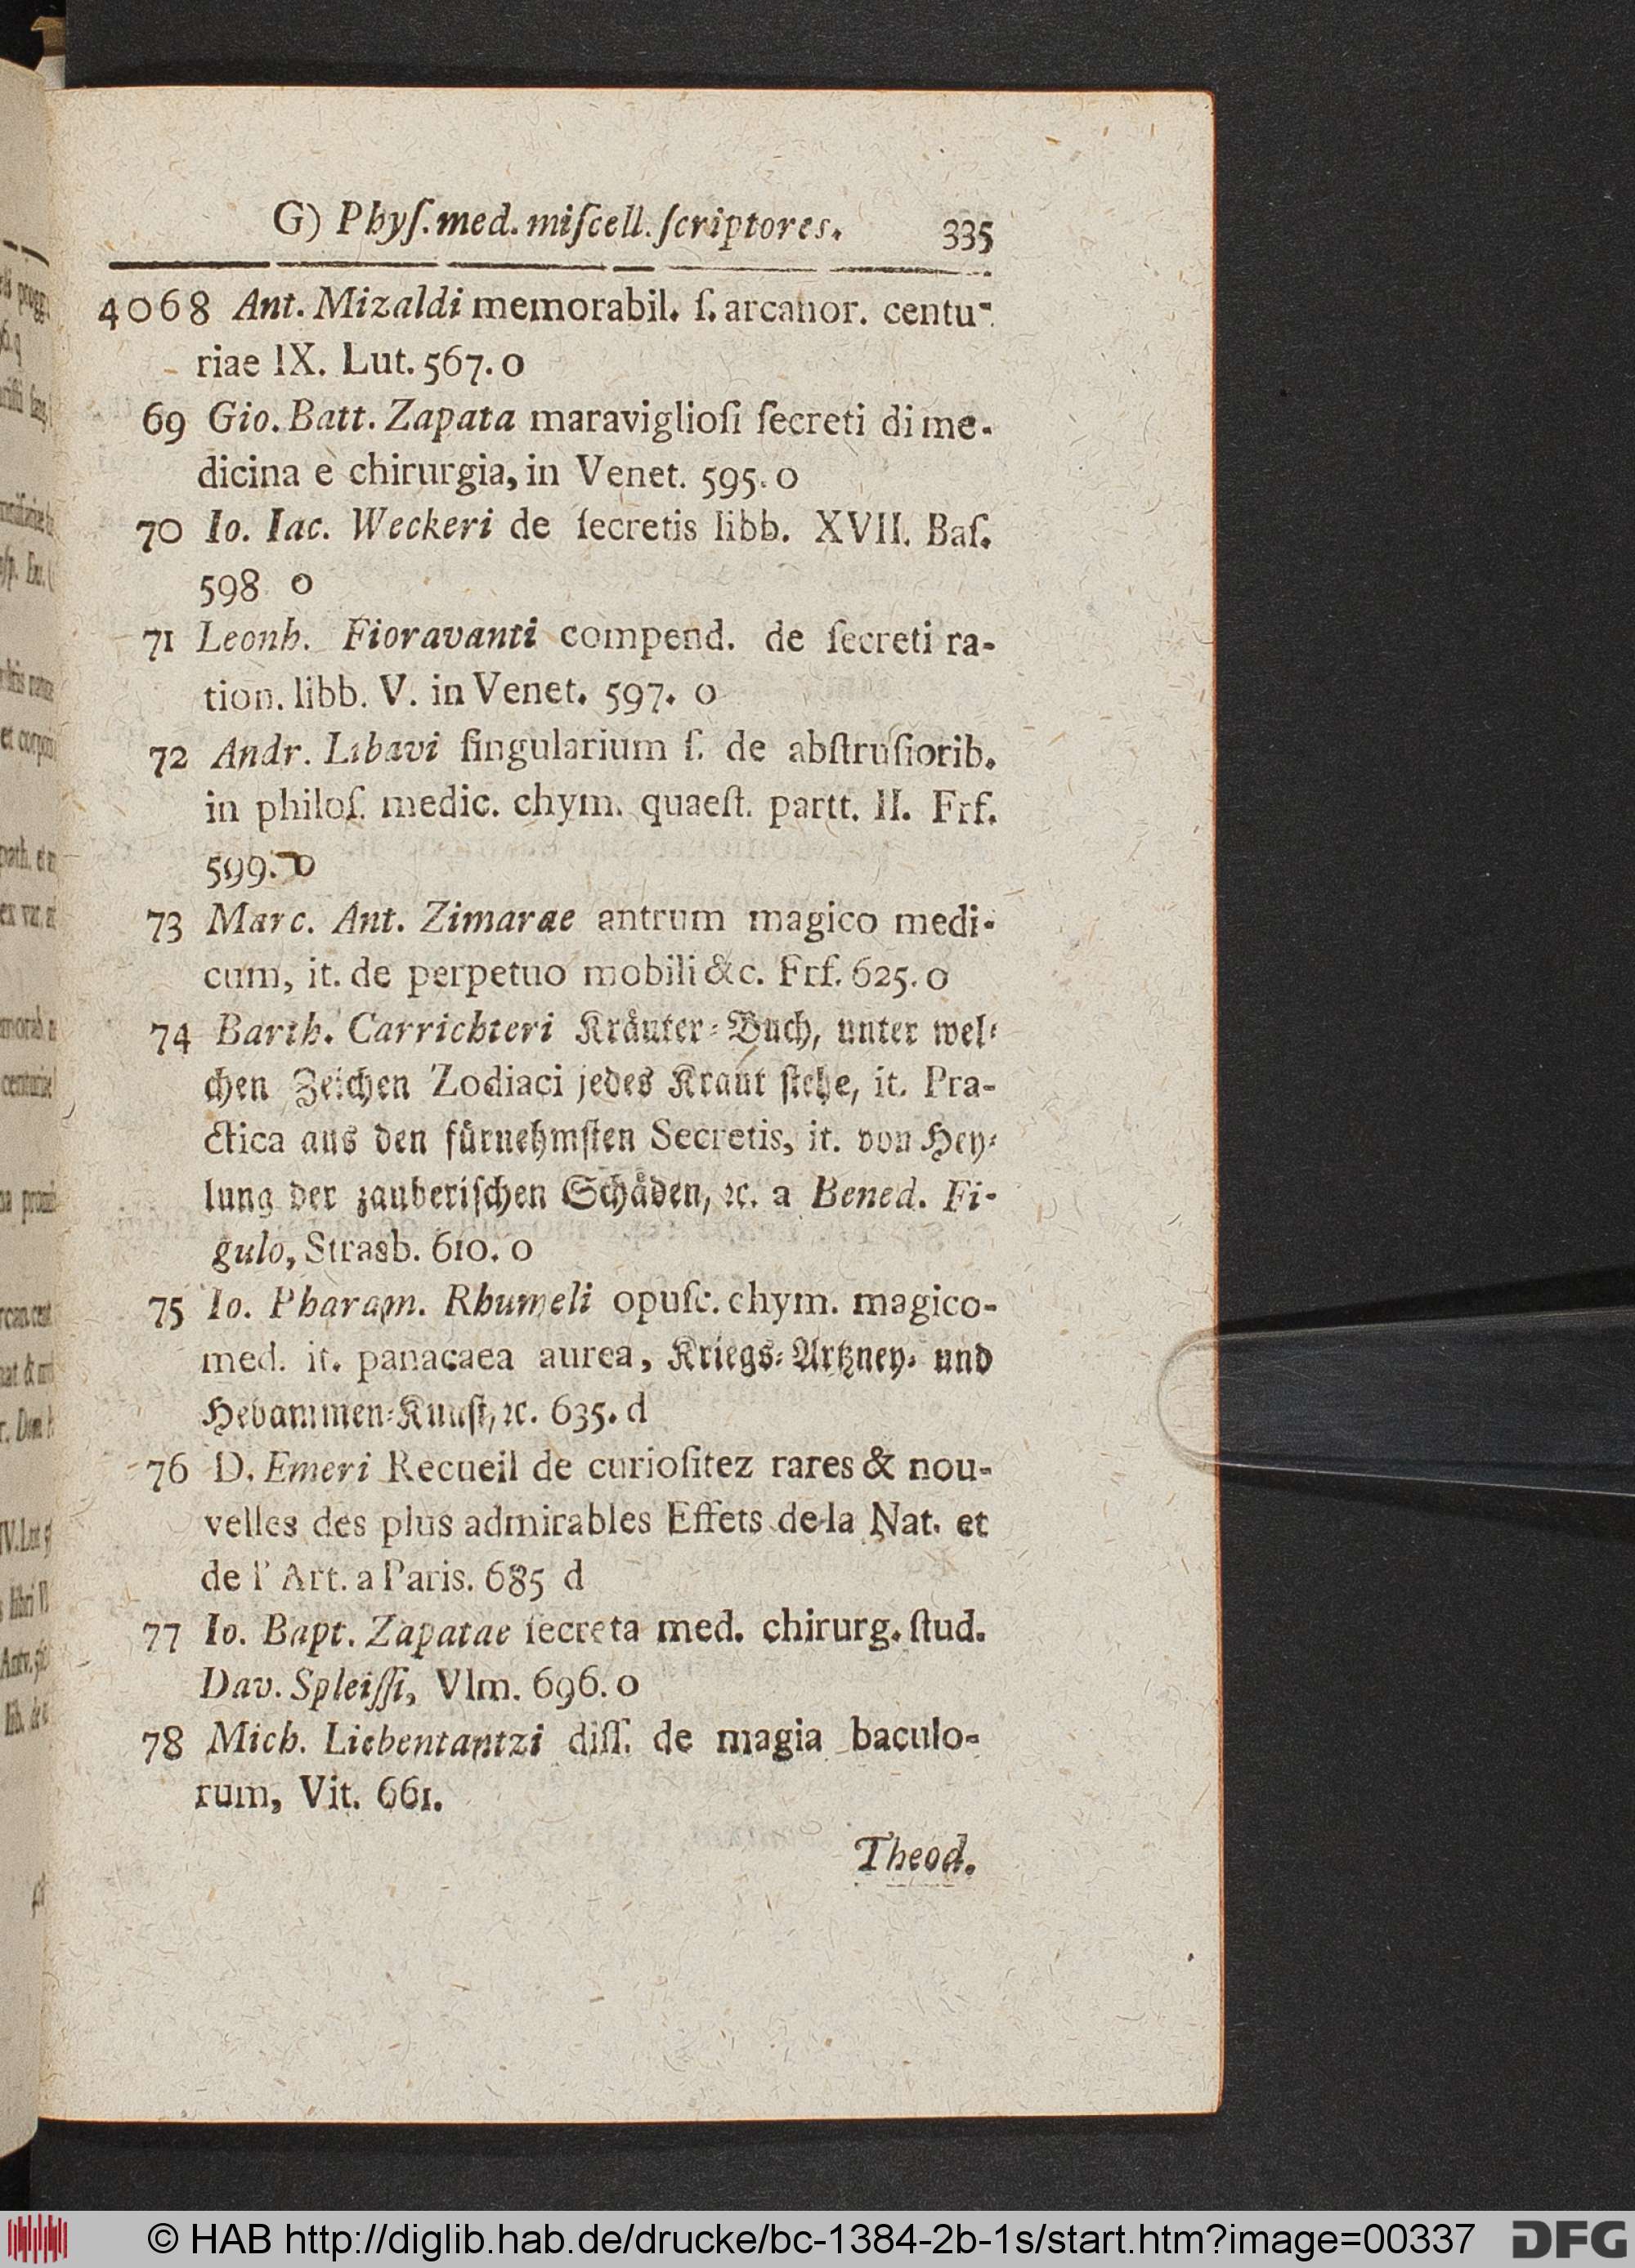 G) Phyſ. med. miſcell. ſcriptores. 335
4068 Ant. Mizaldi memorabil. ſ. arcanor. centu-
riae IX. Lut. 567. o
69 Gio. Batt. Zapata maraviglioſi ſecreti di me-
dicina e chirurgia, in Venet. 595. o
70 Io. Iac. Weckeri de ſecretis libb. XVII. Baſ.
598 o
71 Leonh. Fioravanti compend. de ſecreti ra-
tion. libb. V. in Venet. 597. o
72 Andr. Libavi ſingularium ſ. de abſtruſiorib.
in philoſ. medic. chym. quaeſt. partt. II. Frf.
599. o
73 Marc. Ant. Zimarae antrum magico medi-
cum, it. de perpetuo mobili &c. Frf. 625. o
74 Barth. Carrichteri Kräuter-Buch, unter wel-
chen Zeichen Zodiaci jedes Kraut ſtehe, it. Pra-
ctica aus den fürnehmſten Secretis, it. von Hey-
lung der zauberiſchen Schäden, ꝛc. a Bened. Fi-
gulo, Strasb. 610. o
75 Io. Pharam. Rhumeli opuſc. chym. magico-
med. it. panacaea aurea, Kriegs-Artzney- und
Hebammen-Kunſt, ꝛc. 635. d
76 D. Emeri Recueil de curioſitez rares & nou-
velles des plus admirables Effets de la Nat. et
de l' Art. a Paris. 685 d
77 Io. Bapt. Zapatae ſecreta med. chirurg. ſtud.
Dav. Spleiſſi, Vlm. 696. o
78 Mich. Liebentantzi diſſ. de magia baculo-
rum, Vit. 661.
Theod.
© HAB http://diglib.hab.de/drucke/bc-1384-2b-1s/start.htm?image=00337 DFG